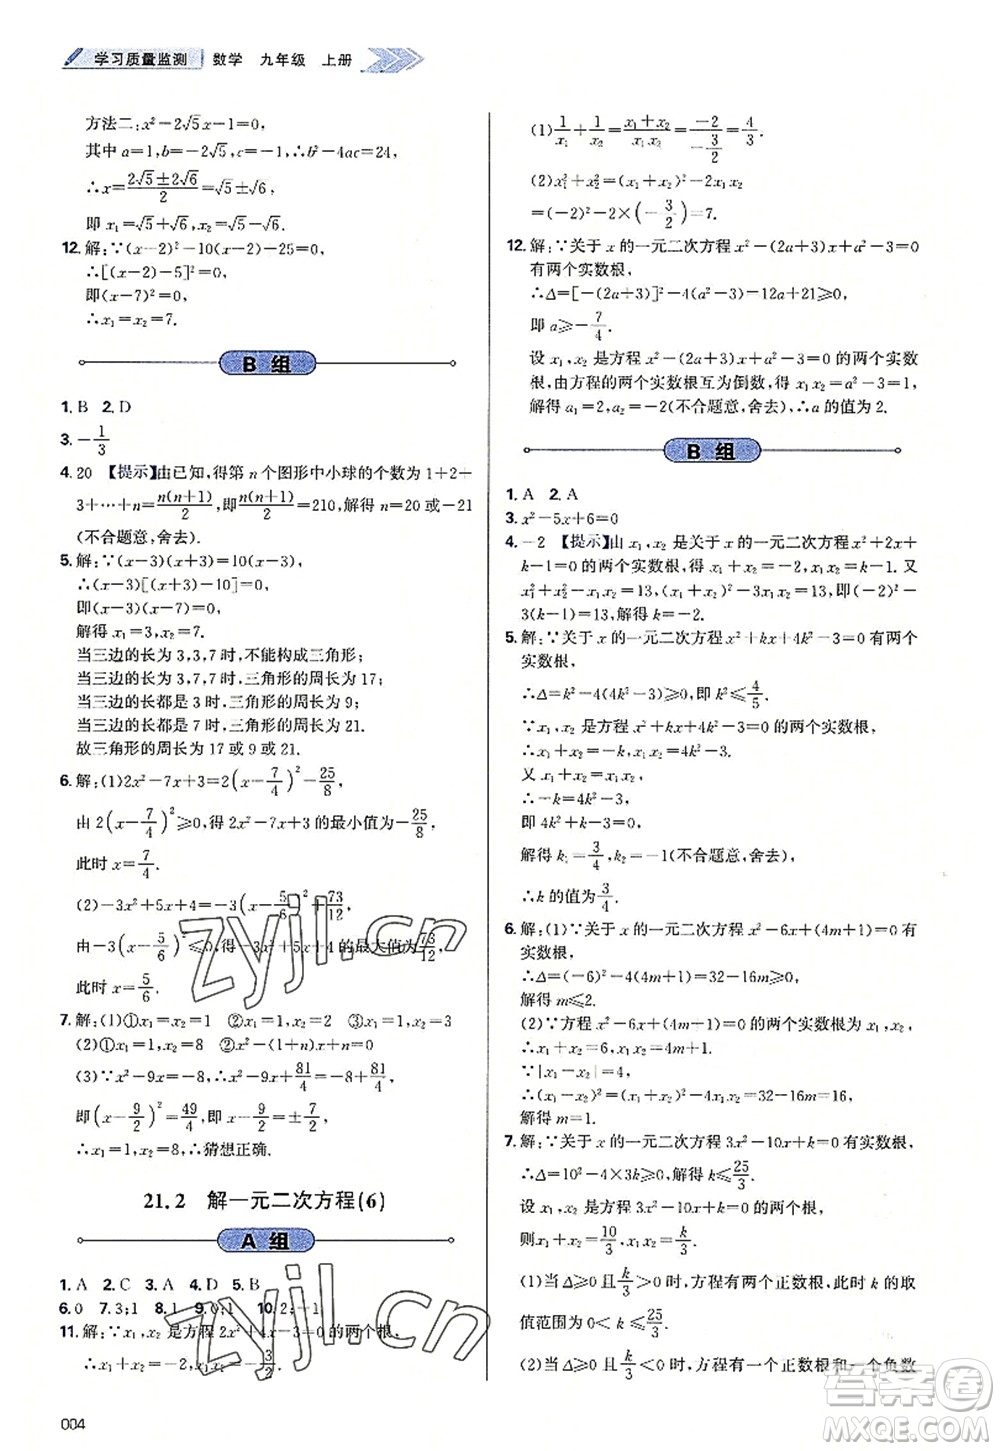 学习质量监测 数学 九年级 上册
方法二:x²-2√5x-1=0,
其中a=1,b=-2√5,c=-1,∴b²-4ac=24,
∴x=(2√5±2√6)/2=√5±√6,
即x₁=√5+√6,x₂=√5-√6.
12.解:∵(x-2)²-10(x-2)-25=0,
∴[(x-2)-5]²=0,
即(x-7)²=0,
∴x₁=x₂=7.
B 组
1. B 2. D
3. -1/3
4. 20 【提示】由已知,得第n个图形中小球的个数为1+2+
3+…+n=n(n+1)/2,即n(n+1)/2=210,解得n=20或-21
(不合题意,舍去).
5.解:∵(x-3)(x+3)=10(x-3),
∴(x-3)[(x+3)-10]=0,
即(x-3)(x-7)=0,
解得x₁=3,x₂=7.
当三边的长为3,3,7时,不能构成三角形;
当三边的长为3,7,7时,三角形的周长为17;
当三边的长都是3时,三角形的周长为9;
当三边的长都是7时,三角形的周长为21.
故三角形的周长为17或9或21.
6.解:(1)2x²-7x+3=2(x-7/4)²-25/8,
由2(x-7/4)²≥0,得2x²-7x+3的最小值为-25/8,
此时x=7/4.
(2)-3x²+5x+4=-3(x-5/6)²+73/12,
由-3(x-5/6)²≤0,得-3x²+5x+4的最大值为73/12,
此时x=5/6.
7.解:(1)①x₁=x₂=1 ②x₁=1,x₂=2 ③x₁=1,x₂=3
(2)①x₁=1,x₂=8 ②x²-(1+n)x+n=0
(3)∵x²-9x=-8,∴x²-9x+81/4=-8+81/4,
即(x-9/2)²=49/4,∴x-9/2=±7/2,
∴x₁=1,x₂=8.∴猜想正确.
21.2 解一元二次方程(6)
A 组
1. A 2. C 3. A 4. D 5. B
6.0 7.3;1 8.1 9.0;1 10.2;-1
11.解:∵x₁,x₂是方程2x²+4x-3=0的两个根,
∴x₁+x₂=-2,x₁x₂=-3/2.
004
(1)1/x₁+1/x₂=(x₁+x₂)/(x₁x₂)=-2/(-3/2)=4/3.
(2)x₁²+x₂²=(x₁+x₂)²-2x₁x₂
=(-2)²-2×(-3/2)=7.
12.解:∵关于x的一元二次方程x²-(2a+3)x+a²-3=0
有两个实数根,
∴Δ=[-(2a+3)]²-4(a²-3)=12a+21≥0,
即a≥-7/4.
设x₁,x₂是方程x²-(2a+3)x+a²-3=0的两个实数
根,由方程的两个实数根互为倒数,得x₁x₂=a²-3=1,
解得a₁=2,a₂=-2(不合题意,舍去),∴a的值为2.
B 组
1. A 2. A
3. x²-5x+6=0
4. -2 【提示】由x₁,x₂是关于x的一元二次方程x²+2x+
k-1=0的两个实数根,得x₁+x₂=-2,x₁x₂=k-1.又
x₁²+x₂²-x₁x₂=13,∴(x₁+x₂)²-3x₁x₂=13,∴(-2)²-
3(k-1)=13,解得k=-2.
5.解:∵关于x的一元二次方程x²+kx+4k²-3=0有两个
实数根,
∴Δ=k²-4(4k²-3)≥0,即k²≤4/5.
∵x₁,x₂是方程x²+kx+4k²-3=0的两个实数根,
∴x₁+x₂=-k,x₁x₂=4k²-3.
又x₁+x₂=x₁x₂,
∴-k=4k²-3,
即4k²+k-3=0,
解得k₁=3/4,k₂=-1(不合题意,舍去),
∴k的值为3/4.
6.解:(1)∵关于x的一元二次方程x²-6x+(4m+1)=0有
实数根,
∴Δ=(-6)²-4(4m+1)=32-16m≥0,
解得m≤2.
(2)∵方程x²-6x+(4m+1)=0的根为x₁,x₂,
∴x₁+x₂=6,x₁x₂=4m+1.
∵|x₁-x₂|=4,
∴(x₁-x₂)²=(x₁+x₂)²-4x₁x₂=32-16m=16,
解得m=1.
7.解:∵关于x的一元二次方程3x²-10x+k=0有实数根,
∴Δ=10²-4×3k≥0,∴k≤25/3.
设x₁,x₂是方程3x²-10x+k=0的两个实数根,
则x₁+x₂=10/3,x₁x₂=k/3.
(1)当Δ≥0且k/3>0时,方程有两个正数根,此时k的取
值范围为0<k≤25/3.
(2)当Δ>0且k/3<0时,方程有一个正数根和一个负数
zyjl.cn
zyjl.cn
答案圈
MXQE.COM